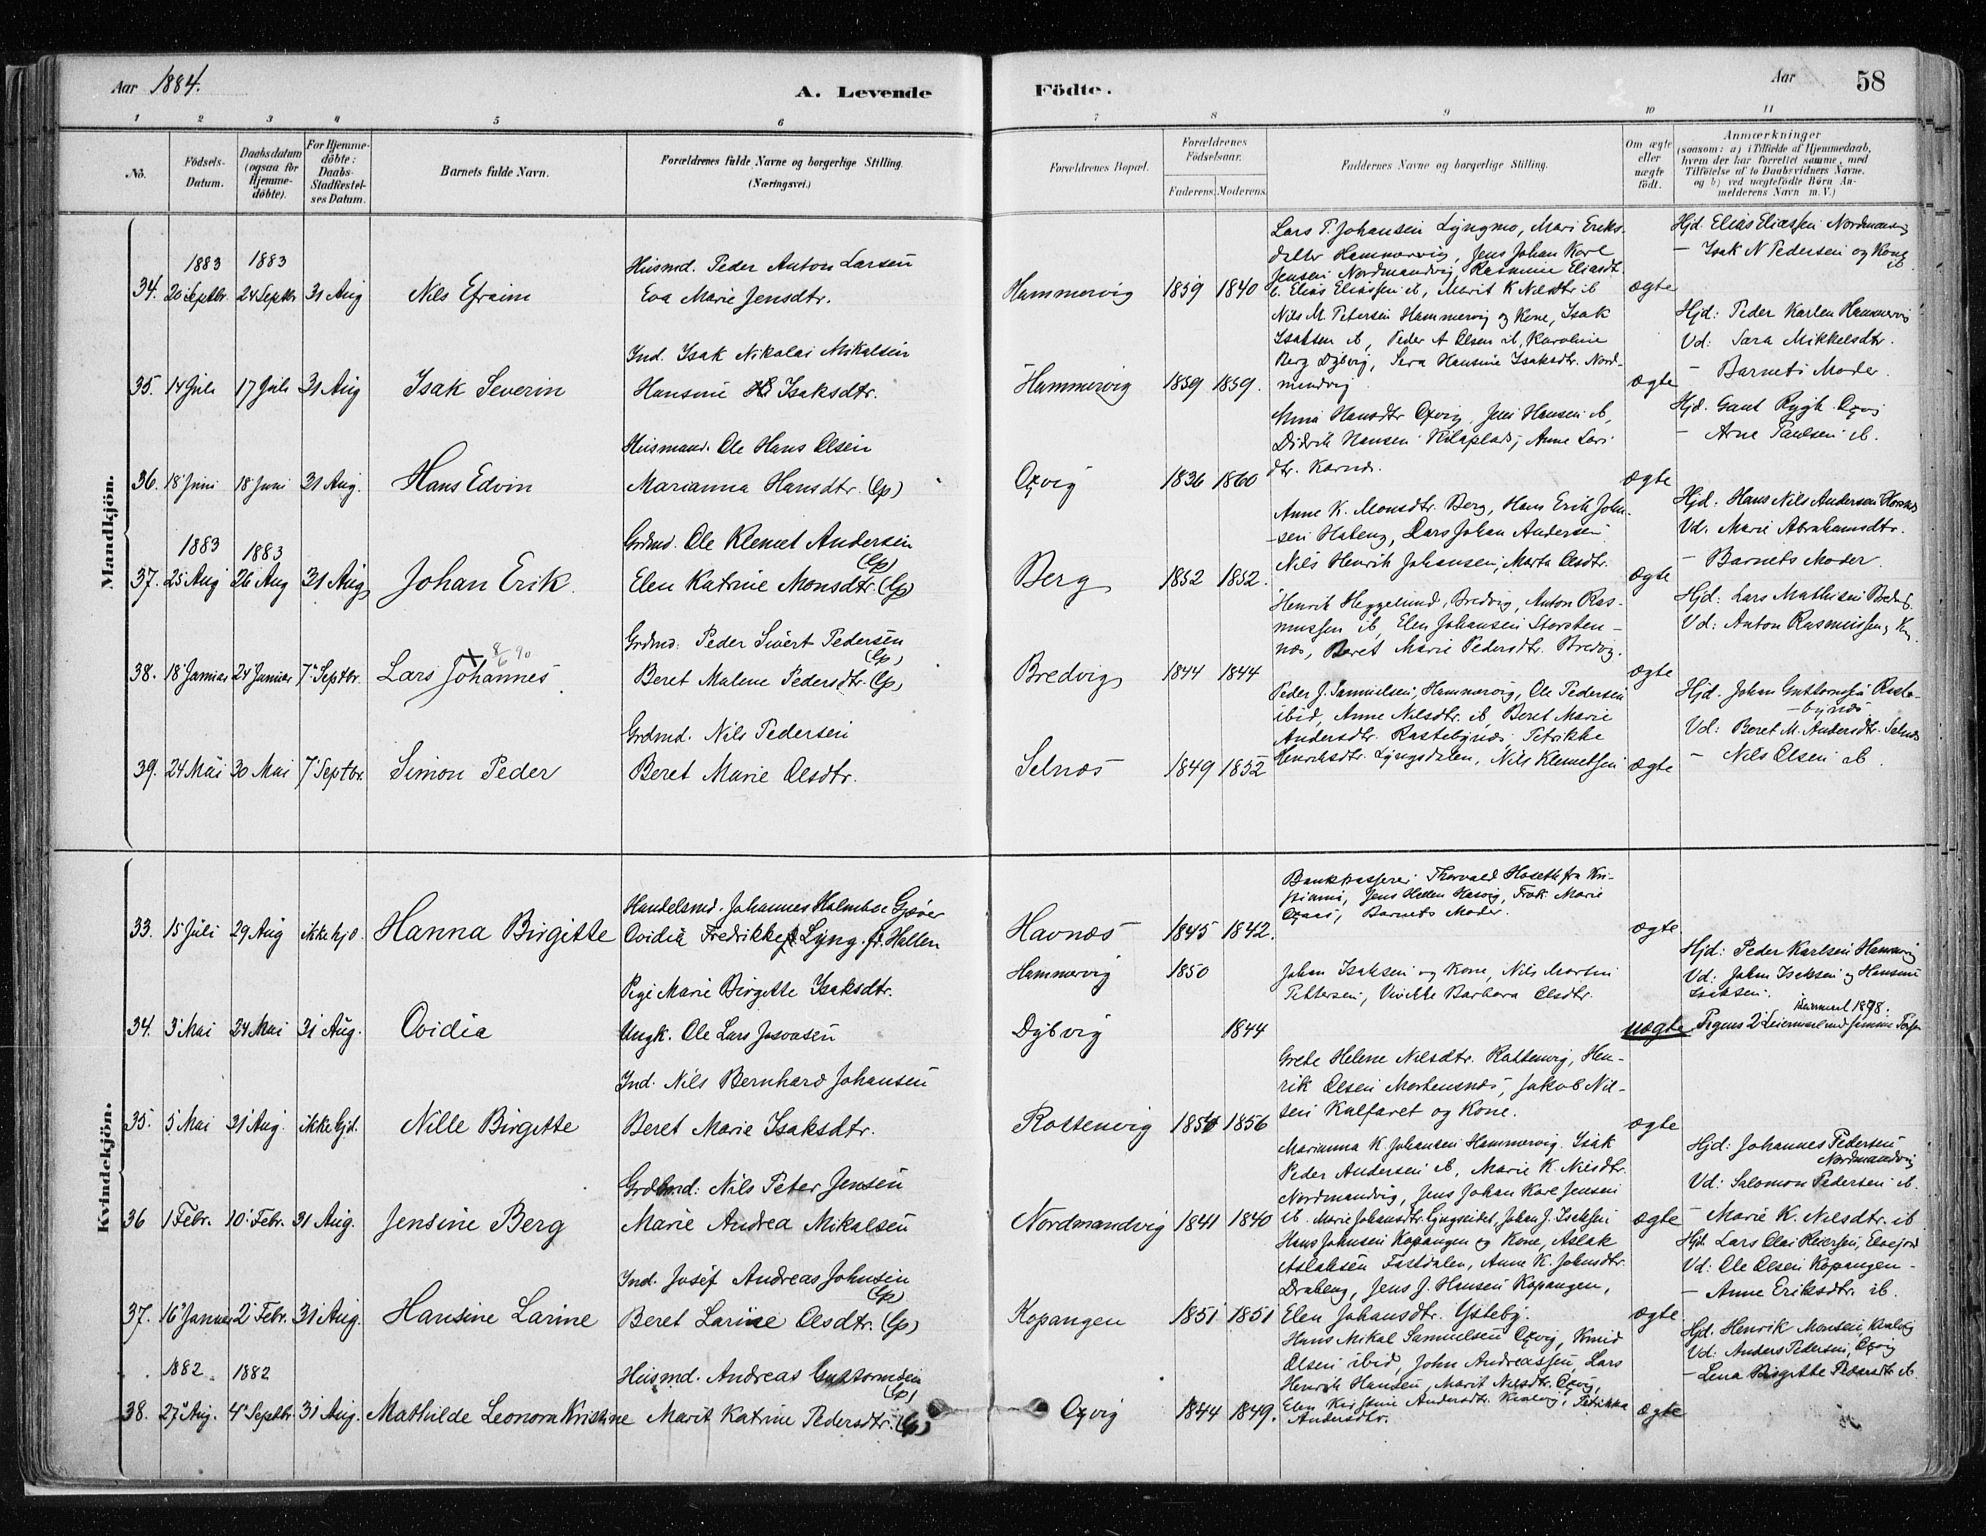 Aar 1884.
A. Levende
Födte.
Aar
58
1 2 3 4 5 6 7 8 9 10 11
No.
Födsels-Datum.
Daabsdatum (ogsaa for Hjemme-döbte).
For Hjemme-döbte: Daabs-Stadfæstel-ses Datum.
Barnets fulde Navn.
Forældrenes fulde Navne og borgerlige Stilling.
(Næringsvei.)
Forældrenes Bopæl.
Forældrenes Födselsaar.
Faderens. Moderens.
Faddernes Navne og borgerlige Stilling.
Om ægte eller uægte födt.
Anmærkninger
(saasom: a) i Tilfælde af Hjemmedaab,
hvem der har forrettet samme, med
Tilföielse af to Daabsvidners Navne.
og b) ved uægtefödte Börn An-
melderens Navn m. V.)
Mandkjön.
1883 1883
34. 20 Septbr. 24 Septbr 31 Aug
Nils Efraim
Husmd. Peder Anton Larsen
Eva Marie Jensdtr.
Hammervig 1859 1840
Lars P. Johansen Lyngmo, Mari Eriks-
datter Hammervig, Jens Johan Karl
Jensen Nordmandvig, Rasmine Eliasdt.
E. Elias Eliassen ib, Marit K Nilsdtr ib
ægte
Hjd. Elias Eliassen Nordmandvig
– Isak N Pedersen og Kone ib.
35. 14 Juli 17 Juli 31 Aug
Isak Severin
Ind. Isak Nikolai Mikalsen
Hansine Isaksdtr.
Hammervig 1859 1859.
Nils M. Petersen Hammervig og Kone, Isak
Isaksen ib, Peder A Olsen ib, Karoline
Berg Dybvig, Sera Hansine Isaksdtr. Nord-
mandvig.
ægte
Hjd: Peder Karlsen Hammervig
Vd: Sara Mikkelsdtr.
– Barnets Moder.
36. 18 Juni 18 Juni 31 Aug.
Hans Edvin
Husmand. Ole Hans Olsen
Marianna Hansdtr. (Lp)
Oxvig 1836 1860
Anna Hansdtr Oxvig, Jens Hansen ib,
Didrik Hansen Kilaplads, Anne Lars
dtr. Karnes.
ægte
Hjd. Gaut Rygh Oxvig
– Arne Paulsen ib.
1883 1883
37. 25 Aug 26 Aug 31 Aug
Johan Erik
Grdmd. Ole Klemet Andersen
(Lp)
Elen Katrine Monsdtr. (Lp)
Berg 1852 1852.
Anne K. Monsdtr. Berg, Hans Erik John-
sen Hateng, Lars Johan Andersen
Nils Henrik Johansen, Marta Olsdtr.
ægte
Hjd. Hans Nils Andersen Horsnes
Vd: Marie Abrahamsdtr.
– Barnets Moder.
38. 18 Januar 24 Januar 7 Septbr.
8/6 90
Lars Johannes
Grdmd: Peder Sivert Pedersen
(Lp)
Beret Malene Pedersdtr. (Lp)
Bredvig 1844 1844
Henrik Heggelund, Bredvig, Anton Ras-
mussen ib, Elen Johansen Storsten-
næs, Beret Marie Pedersdtr. Bredvig.
ægte
Hjd: Lars Mathisen Bredvig.
Vd: Anton Rasmussen,
39. 24 Mai 30 Mai 7 Septbr.
Simon Peder
Grdmd. Nils Pedersen
Beret Marie Olsdtr.
Selnæs 1849 1852
Peder J. Samuelsen, Hammervig, Ole Pedersen
ibid, Anne Nilsdtr. ib, Beret Marie
Andersdtr. Rastebynæs. Petrikke
Henriksdtr. Lyngsdalen, Nils Klemetsen
ægte
Hjd. Johan Guttormsen Raste-
bynæs
Vd: Beret M. Andersdtr. Selnæs
– Nils Olsen ib.
Kvindekjön.
33. 15 Juli 29 Aug ikke hjd.
Hanna Birgitte
Handelsmd. Johannes Holmboe Gjæver
Ovidia Fredrikke Lyng. fd. Hallen
Havnæs 1845 1842.
Bankkasserer Thorvald Haseth fra Kri-
stiania, Jens Hellen Havig, Frøk. Marie
Oxaas, Barnets Moder.
ægte
34. 3 Mai 24 Mai 31 Aug.
Ovidia
Pige Marie Birgitte Isaksdtr.
Ungk. Ole Lars Josvasen
Hammervig 1850
Dybvig 1844
Johan Isaksen og Kone, Nils Martin
Pettersen, Vivikke Barbara Olsdtr.
uægte
Hjd: Peder Karlsen Hammervig
Vd: Johan Isaksen og Hansine
Isaksen.
Pigens 2' Leiermaal
35. 5 Mai 31 Aug. ikke hjd.
Nille Birgitte
Ind. Nils Bernhard Johansen
Beret Marie Isaksdtr.
Rottenvig 1850 1856
Grete Helene Nilsdtr. Rattenvig, Hen-
rik Olsen Mortensnæs, Jakob Nil-
sen Kalfaret og Kone.
ægte
36 1 Febr. 10' Febr. 31 Aug.
Jensine Berg
Grdmd: Nils Peter Jensen
Marie Andrea Mikalsen
Nordmandvig 1841 1840
Marianna K. Johansen Hammervig. Isak
Peder Andersen ib, Marie K. Nilsdtr.
Nordmandvig, Jens Johan Karl Jensen
ib. Marie Johansdtr. Lyngseidet, Johan J. Isaksen
ægte
Hjd: Johannes Pedersen
Nordmandvig
Vd: Salomon Pedersen ib.
– Marie K. Nilsdtr. ib
37. 16 Januar 2' Febr. 31 Aug.
Hansine Larine
Ind. Josef Andreas Johnsen
(Lp)
Beret Larine Olsdtr. (Lp)
Kopangen 1851 1851
Hans Johnsen Kopangen og Kone, Aslak
Aslaksen Fastdalen, Anne K. Johnsdtr.
Drabeng, Jens J. Hansen Kopangen,
Elen Johansdtr. Ysteby.
ægte
Hjd. Lars Olai Reiersen, Elvejord
Vd: Ole Olsen Kopangen
– Anne Eriksdtr. ib.
1882 1882
38. 27' Aug. 4' Septbr 31 Aug.
Mathilde Leonora Kristine
Husmd. Andreas Guttormsen
(Lp)
Marit Katrine Pedersdtr. (Lp)
Oxvig 1844 1849.
Hans Mikal Samuelsen Oxvig, Knud
Olsen ibid, John Andreassen, Lars
Henrik Hansen, Marit Nilsdtr. Oxvig,
Elen Kirstine Andersdtr. Kvalvig, Petrikka
Andersdtr.
ægte
Hjd. Henrik Monsen, Kvalvig
Vd: Anders Pedersen, Oxvig
– Lena Birgitte Pedersdtr ib.